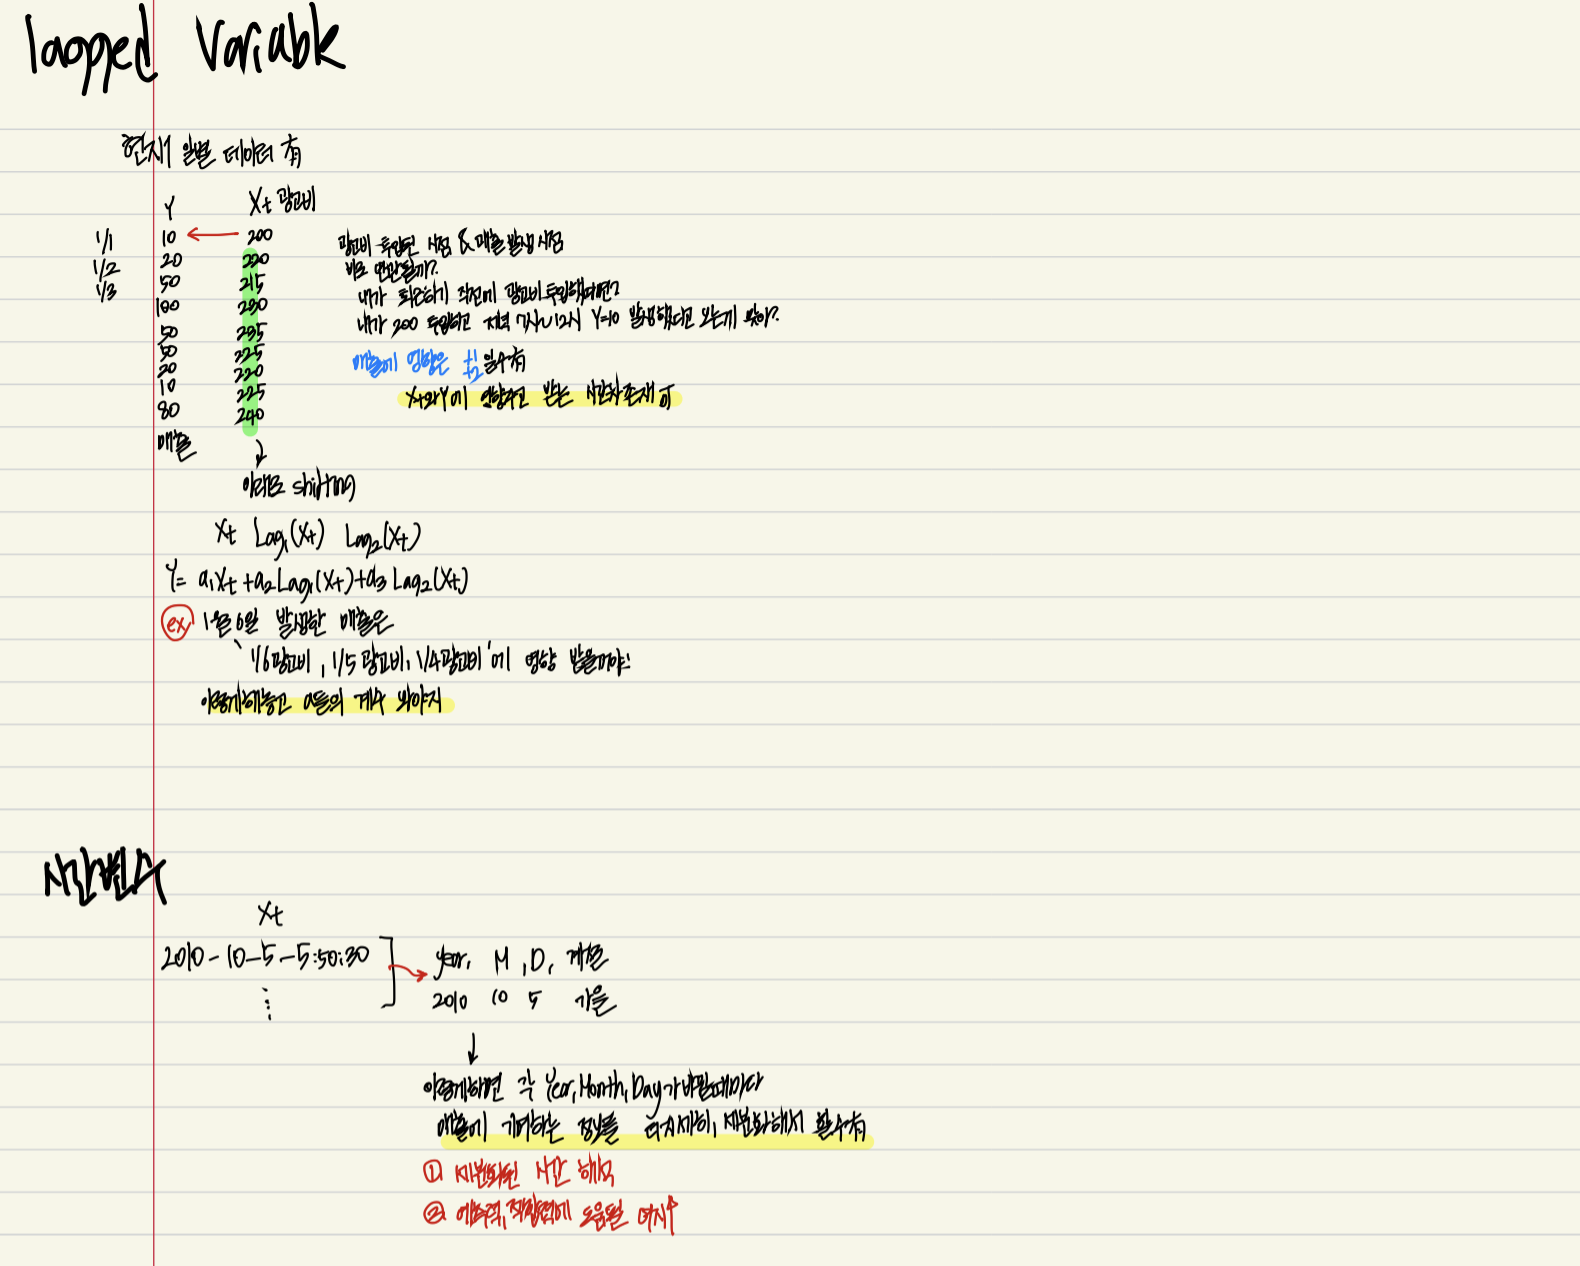 lagged Variable
현재 일별 데이터 有
Y Xt 광고비
1/1 10 ← 200
1/2 20 220
1/3 50 215
100 230
50 235
50 225
20 220
10 225
80 240
매출
광고비 투입된 시점 & 매출 발생 시점
바로 연관될까?
내가 퇴근하기 직전에 광고비 투입했다면?
내가 200 투입하고 저녁 7시~12시 Y=10 발생했다고 보는게 맞아?
매출에 영향은 +1 +2 일수有
Xt와 Y에 영향주고 받는 시간차 존재 可
↓
아래로 shifting
Xt Lag1(Xt) Lag2(Xt)
Y= a1Xt + a2Lag1(Xt) + a3 Lag2(Xt)
ex 1월 6일 발생한 매출은
'1/6 광고비, 1/5 광고비, 1/4 광고비'에 영향 받을거야!
이렇게 해놓고 a들의 계수 봐야지
시간변수
Xt
2010-10-5-5:50:30 → year, M, D, 계절
⋮ 2010 10 5 가을
↓
이렇게하면 각 Year, Month, Day가 바뀔때마다
매출에 기여하는 정보를 더 자세히, 세분화해서 볼수有
① 세분화된 시간 해석
② 예측력, 적합력에 도움될 여지↑